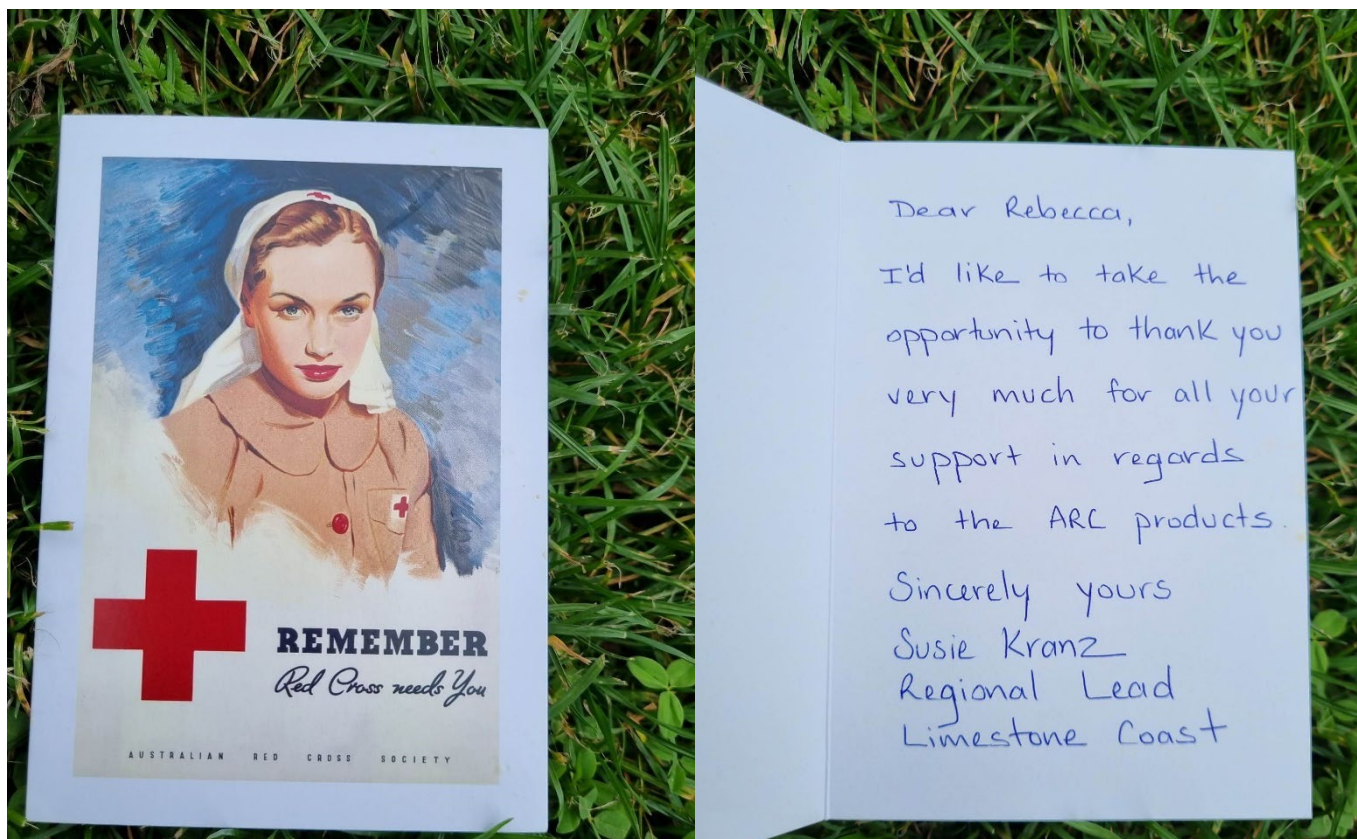 REMEMBER
Red Cross needs You
AUSTRALIAN RED CROSS SOCIETY
Dear Rebecca,
I'd like to take the
opportunity to thank you
very much for all your
support in regards
to the ARC products.
Sincerely yours
Susie Kranz
Regional Lead
Limestone Coast